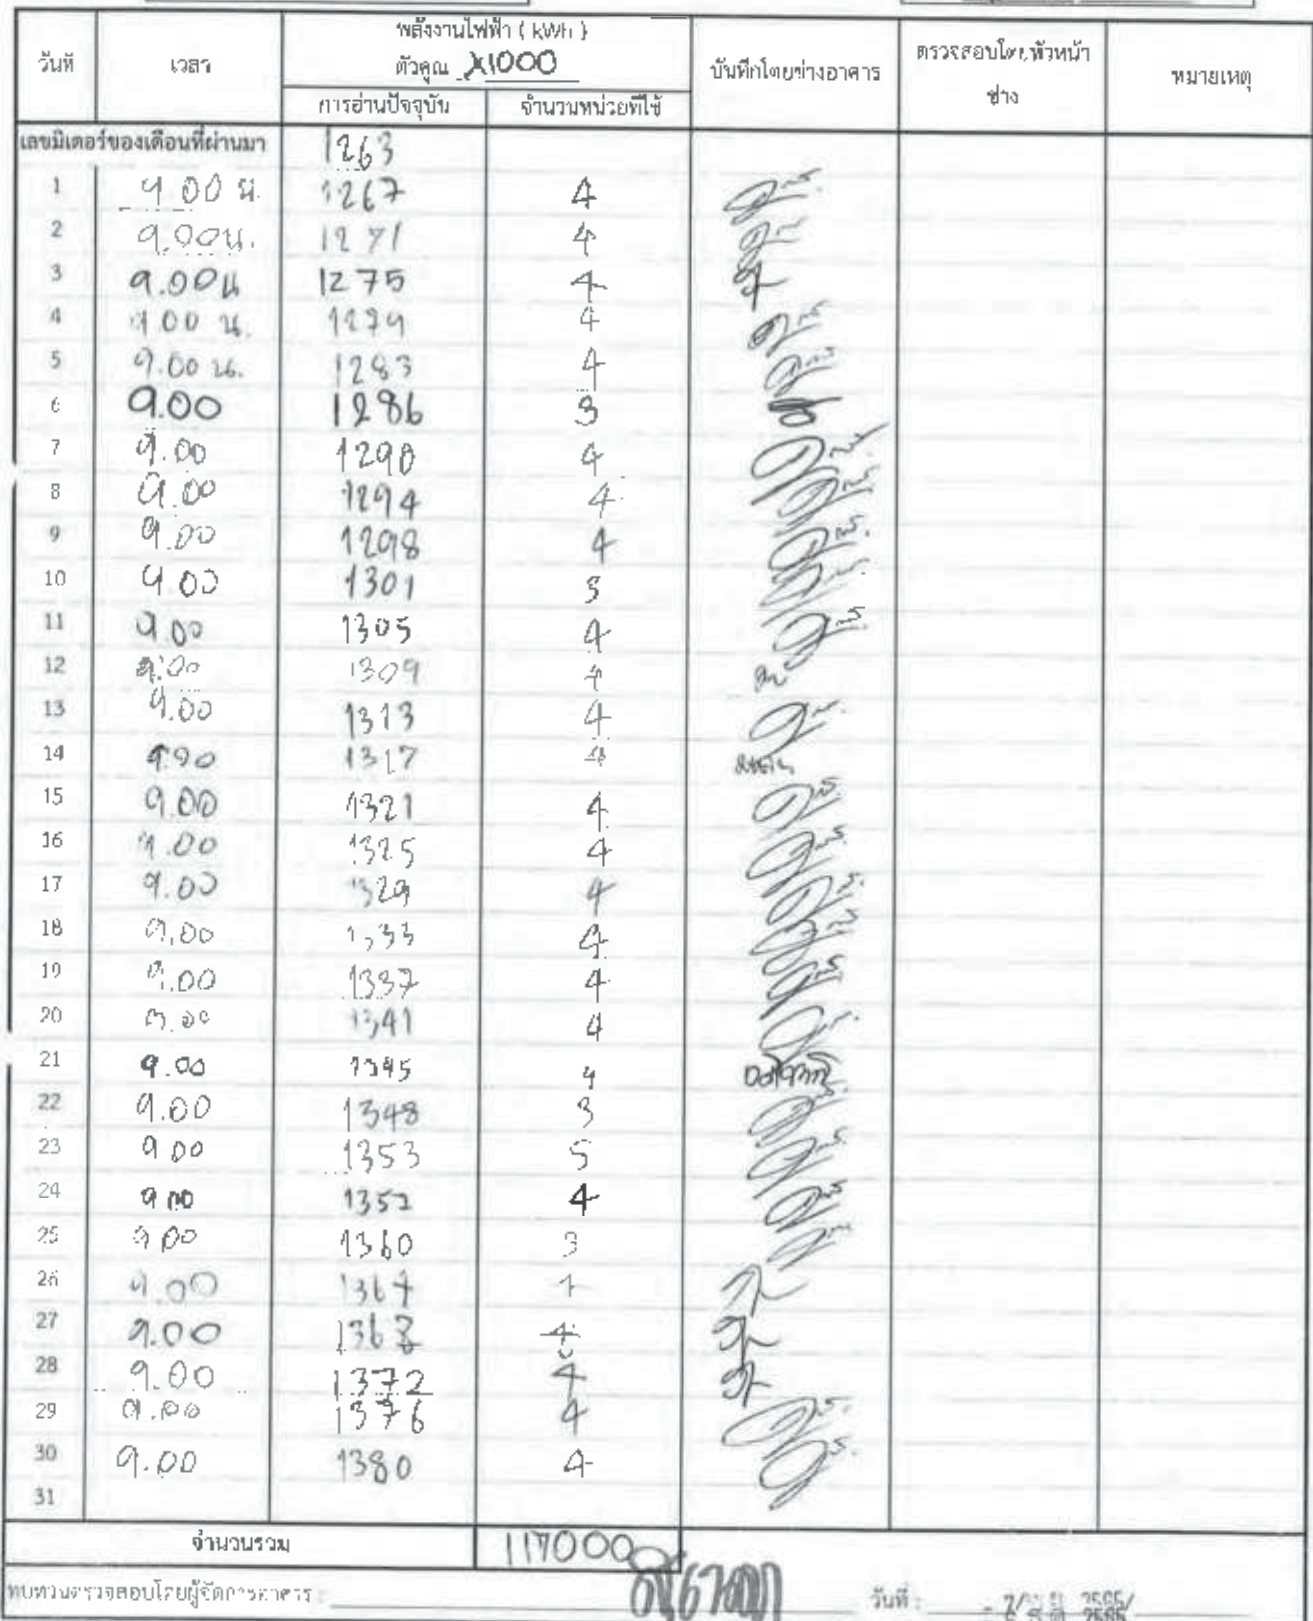 พลังงานไฟฟ้า ( kWh )
วันที่ เวลา ตัวคูณ X1000 บันทึกโดยช่างอาคาร ตรวจสอบโดยหัวหน้าช่าง หมายเหตุ
การอ่านปัจจุบัน จำนวนหน่วยที่ใช้
เลขมิเตอร์ของเดือนที่ผ่านมา 1263
1 9.00 น. 1267 4
2 9.00น. 1271 4
3 9.00น 1275 4
4 9.00 น. 1279 4
5 9.00 น. 1283 4
6 9.00 1286 3
7 9.00 1290 4
8 9.00 1294 4
9 9.00 1298 4
10 9.00 1301 3
11 9.00 1305 4
12 9.00 1309 4
13 9.00 1313 4
14 9.00 1317 4
15 9.00 1321 4
16 9.00 1325 4
17 9.00 1329 4
18 9.00 1333 4
19 9.00 1337 4
20 9.00 1341 4
21 9.00 1345 4
22 9.00 1348 3
23 9.00 1353 5
24 9.00 4
25 9.00 1360 3
26 9.00 1364 4
27 9.00 1368 4
28 9.00 1372 4
29 9.00 1376 4
30 9.00 1380 4
31
จำนวนรวม 117000
ทบทวนตรวจสอบโดยผู้จัดการอาคาร : วันที่ :